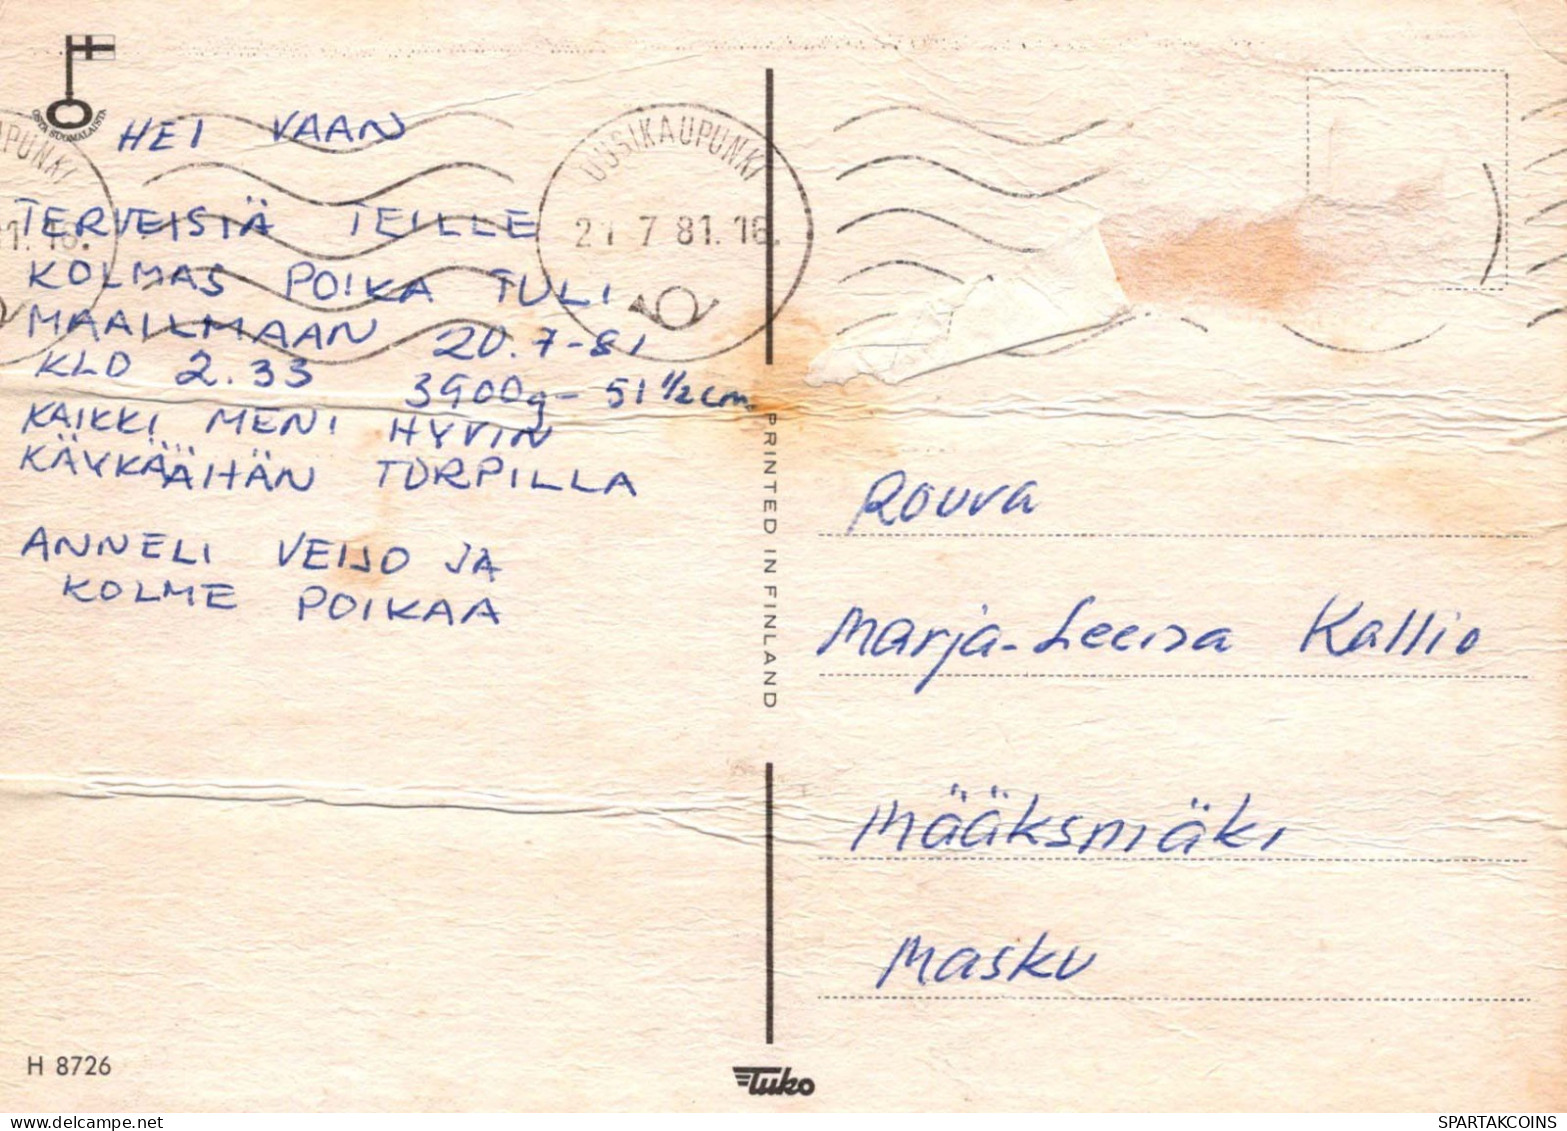 OSTA SUOMALAISTA
HEI VAAN
TERVEISIÄ TEILLE
KOLMAS POIKA TULI
MAAILMAAN 20.7-81
KLO 2.33 3900g - 51 1/2 cm.
KAIKKI MENI HYVIN
KÄYKÄÄHÄN TURPILLA
ANNELI VEIJO JA
KOLME POIKAA
UUSIKAUPUNKI
21 7 81. 16.
PUNKI
1. 16.
PRINTED IN FINLAND
Rouva
Marja-Leena Kallio
Määksmäki
Masku
H 8726
Tuko
SPARTAKCOINS